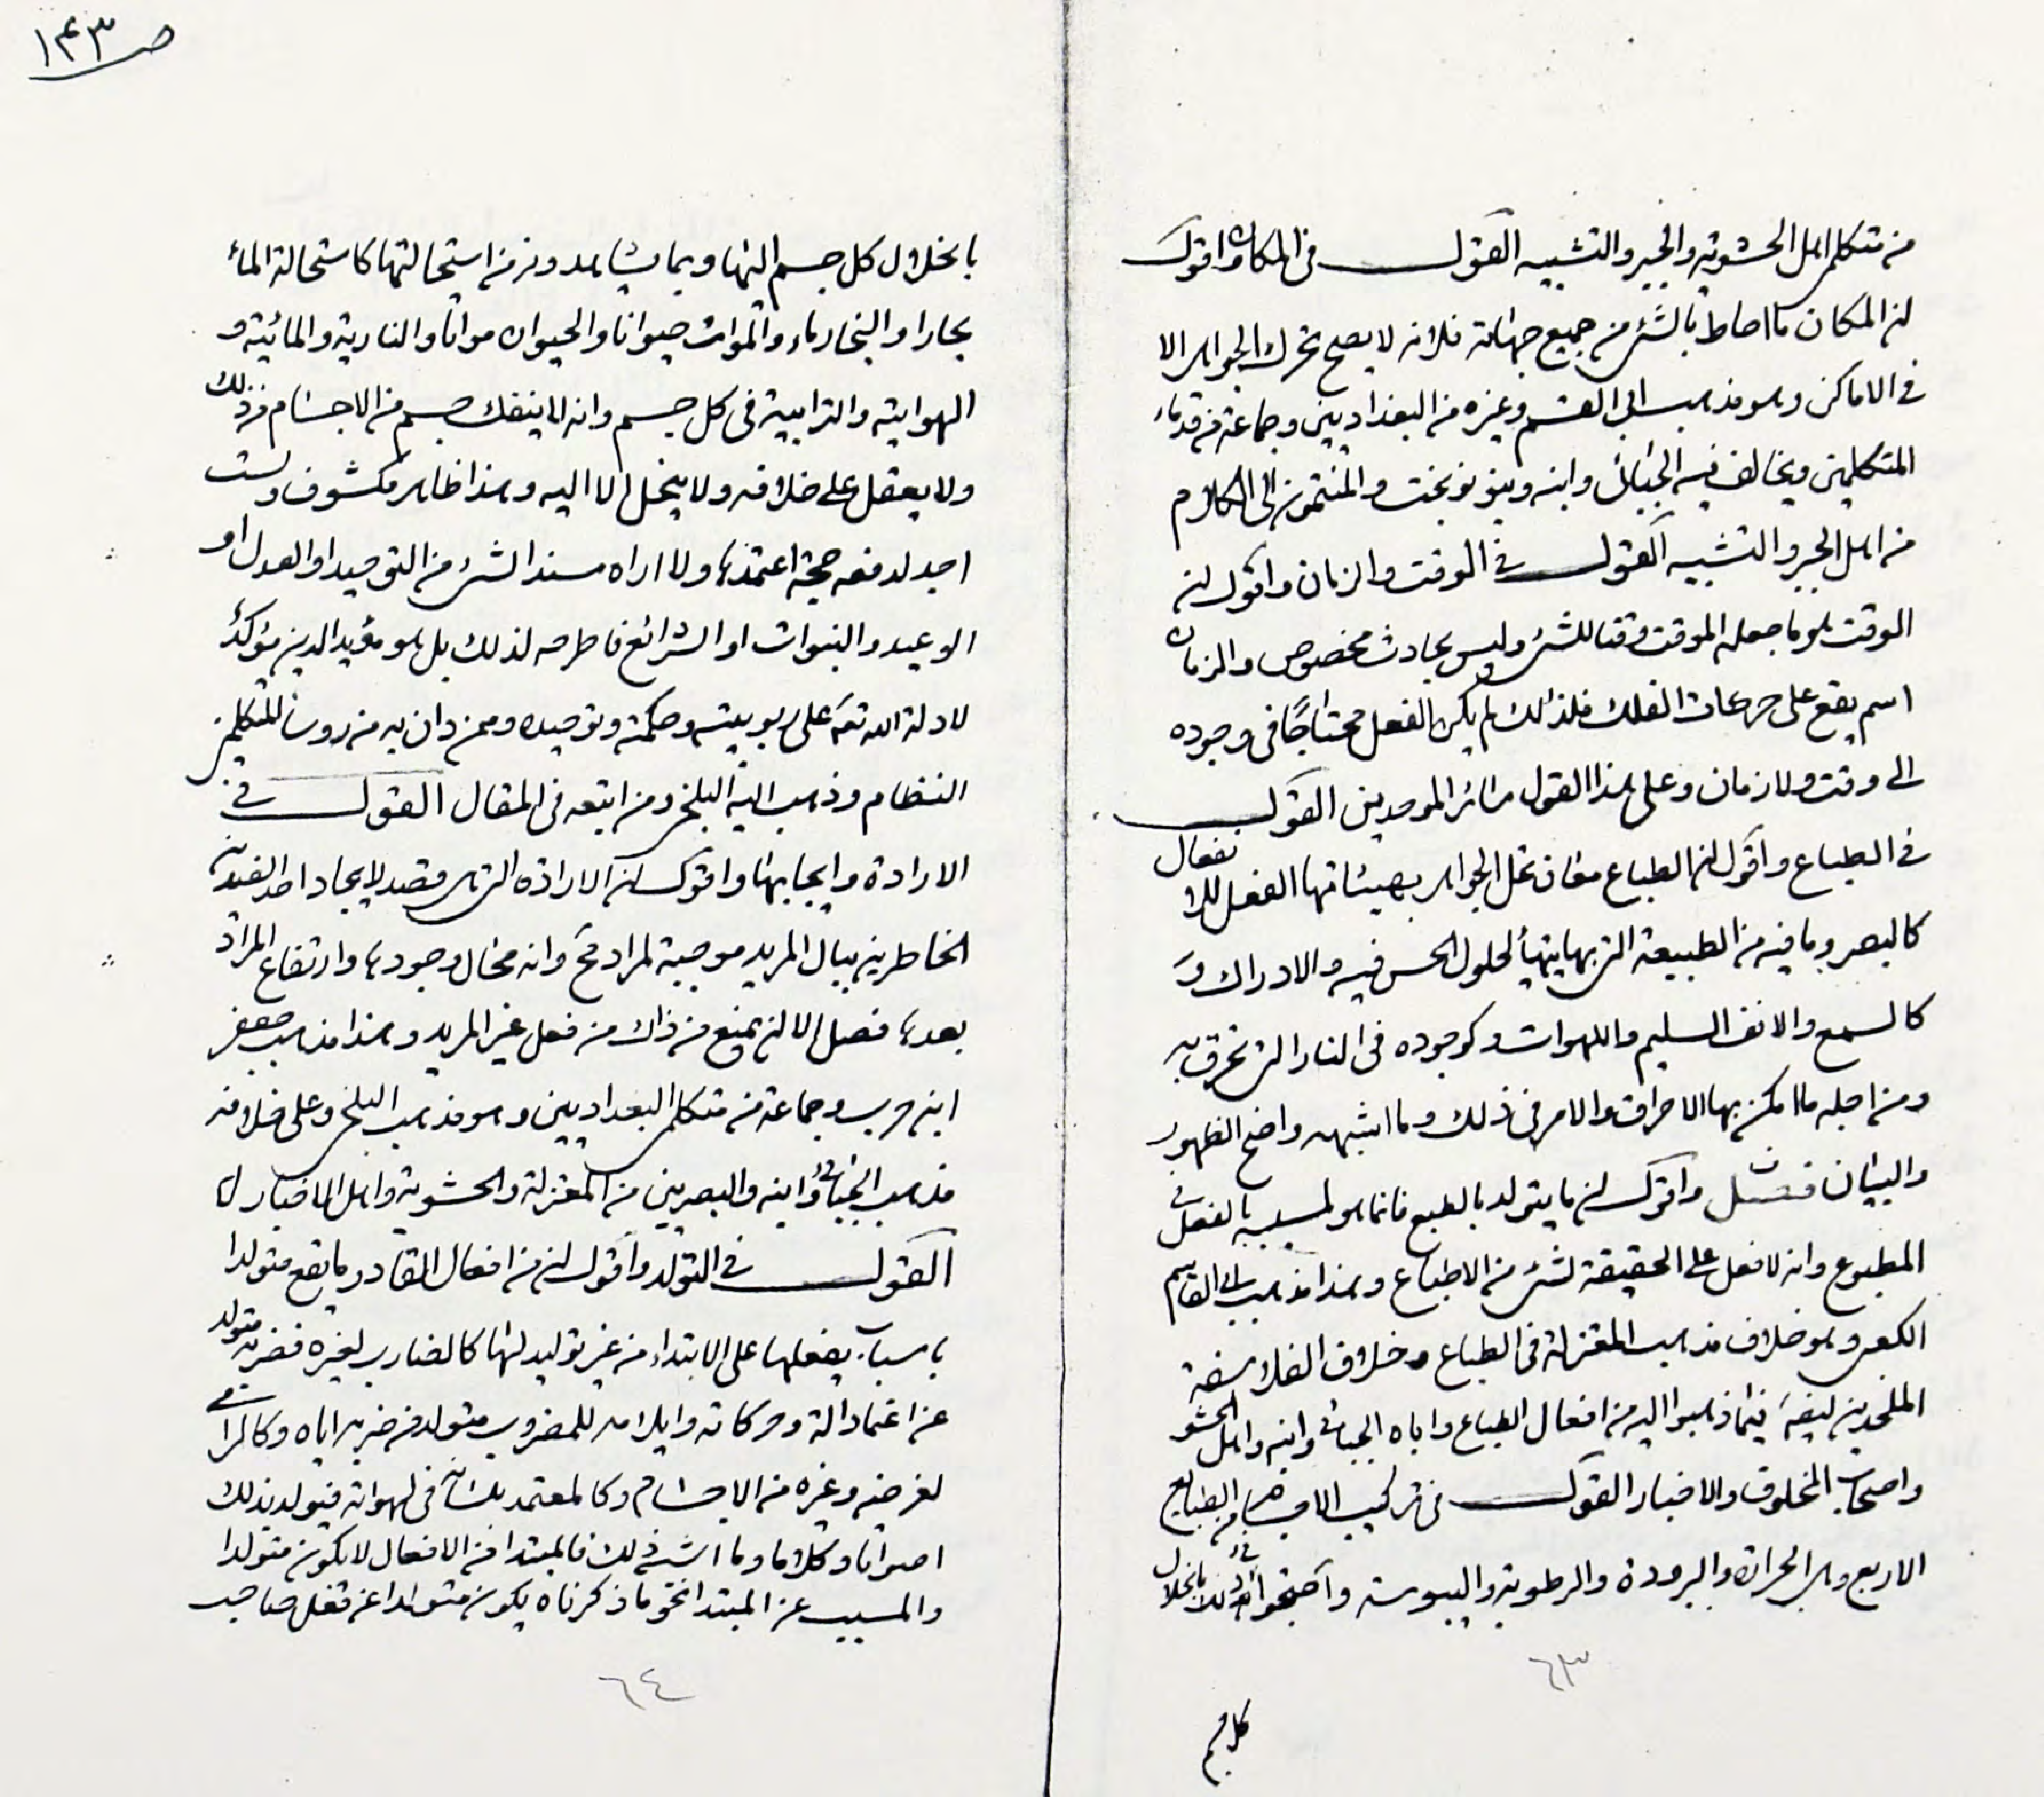 ص ١۴٣
من متكلمى اهل الحشوية والجبر والتشبيه القول فى المكان واقول
ان المكان ما احاط بالشئ من جميع جهاته فلانه لا يصح تحرك الجواهر الا
فى الاماكن وهو مذهب ابى القسم وغيره من البغداديين وجماعة من قدماء
المتكلمين ويخالف فيه الجبائى وابنه وبنو نوبخت والمنتمون الى الكلام
من اهل الجبر والتشبيه القول فى الوقت والزمان واقول ان
الوقت هو ما جعله الموقت وقتا للشئ وليس بحادث مخصوص والزمان
اسم يقع على حركات الفلك فلذلك لم يكن الفعل محتاجًا فى وجوده
الى وقت ولا زمان وعلى هذا القول سائر الموحدين القول
فى الطباع واقول ان الطباع معان تحل الجواهر بهيئاتها الفعل للانفعال
كالبصر وما فيه من الطبيعة التى بها يتهيأ لحلول الحس فيه والادراك و
كالسمع والانف السليم واللهوات وكوجوده فى النار التى تحرق به
ومن اجله ما امكن بها الاحراق والامر فى ذلك وما اشبهه واضح الظهور
والبيان فصل واقول ان ما يتولد بالطبع فانما هو لمسببه بالفعل فى
المطبوع وانه لا فعل على الحقيقة لشئ من الاطباع وهذا مذهب ابى القاسم
الكعبى وهو خلاف مذهب المعتزلة فى الطباع وخلاف الفلاسفة
الملحدين ايضا فيما ذهبوا اليه من افعال الطباع واباه الجبائى وابنه واهل الحشو
واصحاب المخلوق والاخبار القول فى تركيب الاجسام من الطبايع
الاربع وهى الحرارة والبرودة والرطوبة واليبوسة واحتجوا فى ذلك بانحلال
٦٣
كل جسم
بانحلال كل جسم اليها وبما يشاهدونه من استحالتها كاستحالة الماء
بخارا والبخار ماء والموات حيوانا والحيوان مواتا والنارية والمائية و
الهوائية والترابية فى كل جسم وانه لا ينفك جسم من الاجسام من ذلك
ولا يعقل على خلافه ولا ينحل الا اليه وهذا ظاهر مكشوف ولست
اجد لدفعه حجة اعتمدها ولا اراه مفسدا لشئ من التوحيد او العدل او
الوعيد والنبوات او الشرائع فاطرحه لذلك بل هو مؤيد للدين مؤكد
لادلة الله تعه على ربوبيته وحكمته وتوحيده وممن دان به من رؤساء المتكلمين
النظام وذهب اليه البلخى ومن اتبعه فى المقال القول فى
الارادة وايجابها واقول ان الارادة التى هى قصد لايجاد احد الضدين
الخاطرين ببال المريد موجبة لمرادها وانه محال وجودها وارتفاع المراد
بعدها بفصل الا ان يمنع من ذلك من فعل غير المريد وهذا مذهب جعفر
ابن حرب وجماعة من متكلمى البغداديين وهو مذهب البلخى وعلى خلافه
مذهب الجبائى وابنه والبصريين من المعتزلة والحشوية واهل الاخبار
القول فى التولد واقول ان من افعال القادر ما يقع متولدا
باسباب يفعلها على الابتداء من غير توليد لها كالضارب لغيره فضربه متولد
عن اعتماداته وحركاته وايلامه للمضروب متولد من ضربه اياه وكالرامى
لغرضه وغيره من الاجسام وكالمعتمد بلسانه فى لهواته فيولد بذلك
اصواتا وكلاما وما اشبه ذلك فالمبتدا من الافعال لا يكون متولدا
والمسبب عن المبتدا نحو ما ذكرناه يكون متولدا عن فعل صاحب
٦٤